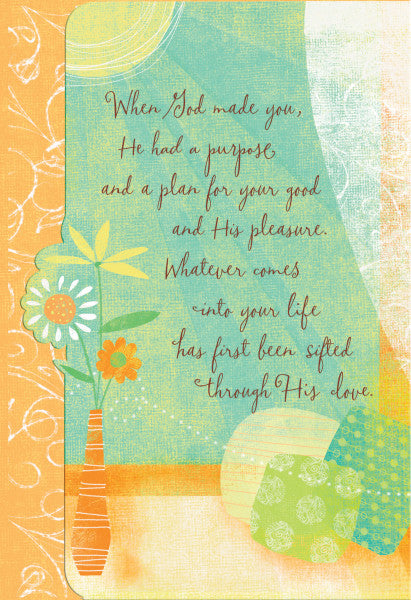 When God made you,
He had a purpose
and a plan for your good
and His pleasure.
Whatever comes
into your life
has first been sifted
through His love.